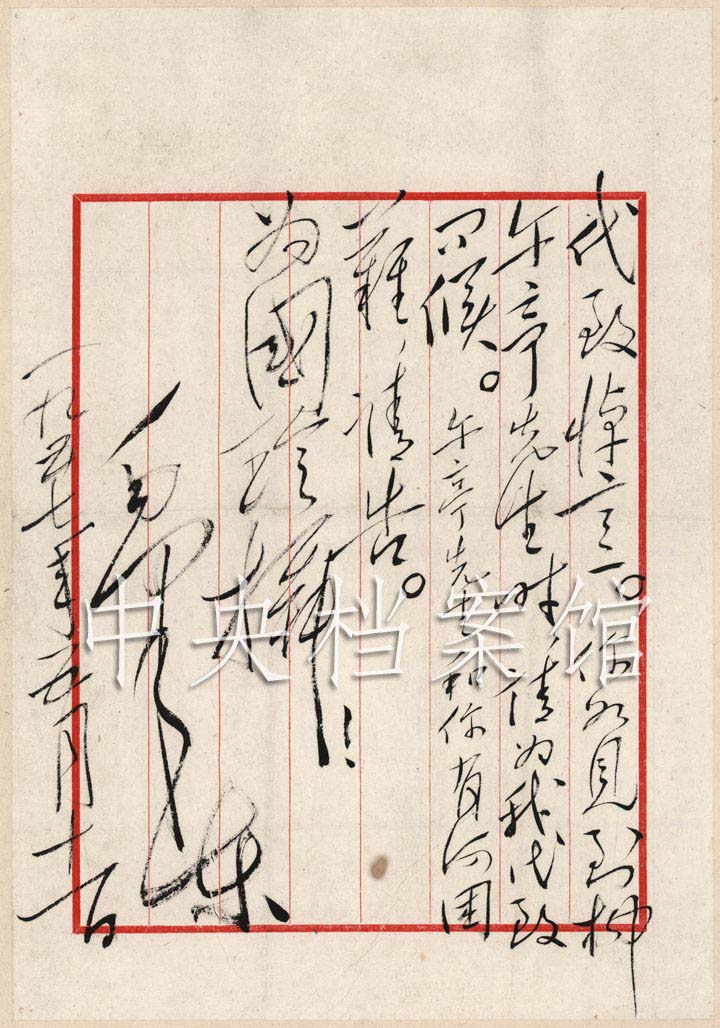 代致悼意。你如见到柳
午亭先生时，请为我代致
问候。午亭先生和你有何困
難，请告。
为國珍攝！
毛泽东
一九五七年五月十一日
中央档案馆